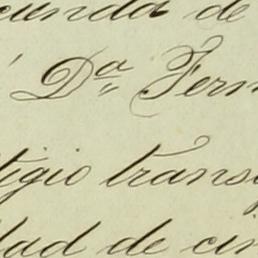 cunda de
Dª Fern
tigio trans
dad de cin